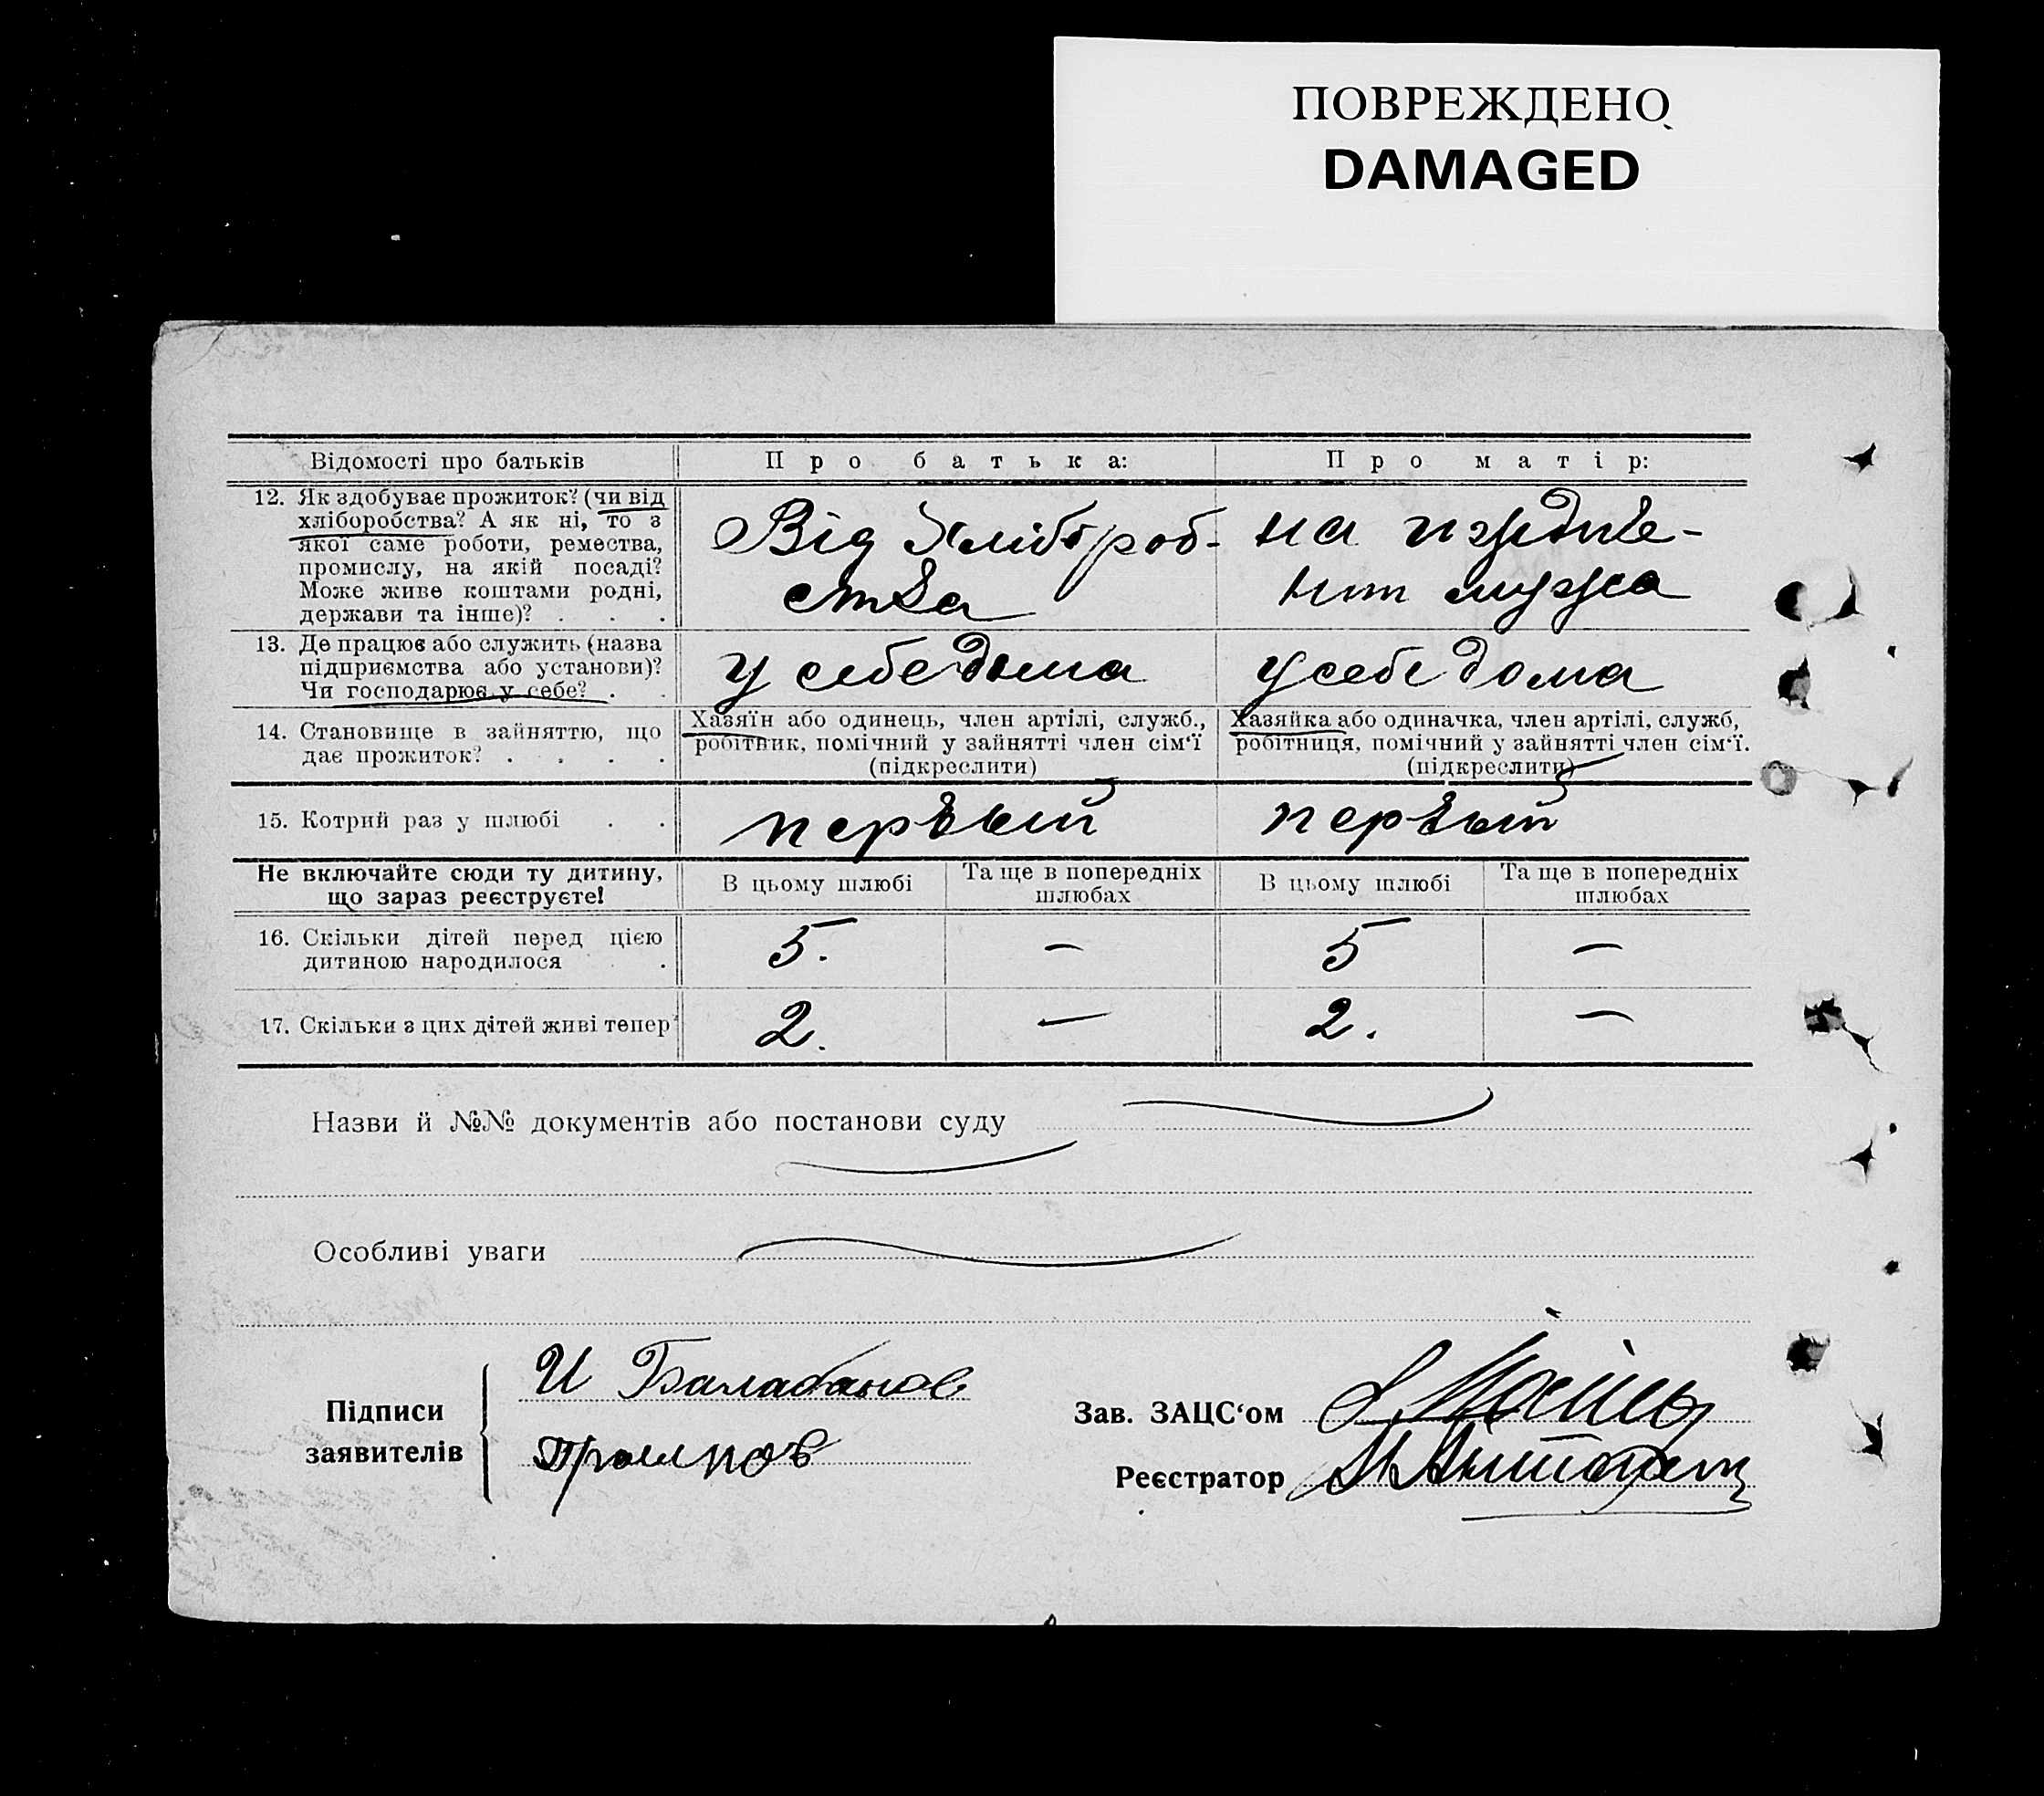 ПОВРЕЖДЕНО
DAMAGED
Відомості про батьків
Про батька:
Про матір:
12. Як здобуває прожиток? (чи від
хліборобства? А як ні, то з
якої саме роботи, ремества,
промислу, на якій посаді?
Може живе коштами родні,
держави та інше)? . . .
Від Хлібороб-
ства
на иждиве-
нии мужа
13. Де працює або служить (назва
підприємства або установи)?
Чи господарює у себе? . .
у себе дома
у себе дома
14. Становище в зайняттю, що
дає прожиток? . . . .
Хазяїн або одинець, член артілі, служб.,
робітник, помічний у зайнятті член сім‘ї
(підкреслити)
Хазяйка або одиначка, член артілі, служб,
робітниця, помічний у зайнятті член сім‘ї.
(підкреслити)
15. Котрий раз у шлюбі . .
первый
первый
Не включайте сюди ту дитину,
що зараз реєструєте!
В цьому шлюбі
Та ще в попередніх
шлюбах
В цьому шлюбі
Та ще в попередніх
шлюбах
16. Скільки дітей перед цією
дитиною народилося . .
5.
—
5
—
17. Скільки з цих дітей живі тепер
2.
—
2.
—
Назви й №№ документів або постанови суду
Особливі уваги
Підписи
заявителів
И Балабанов
Зав. ЗАЦС‘ом
Реєстратор